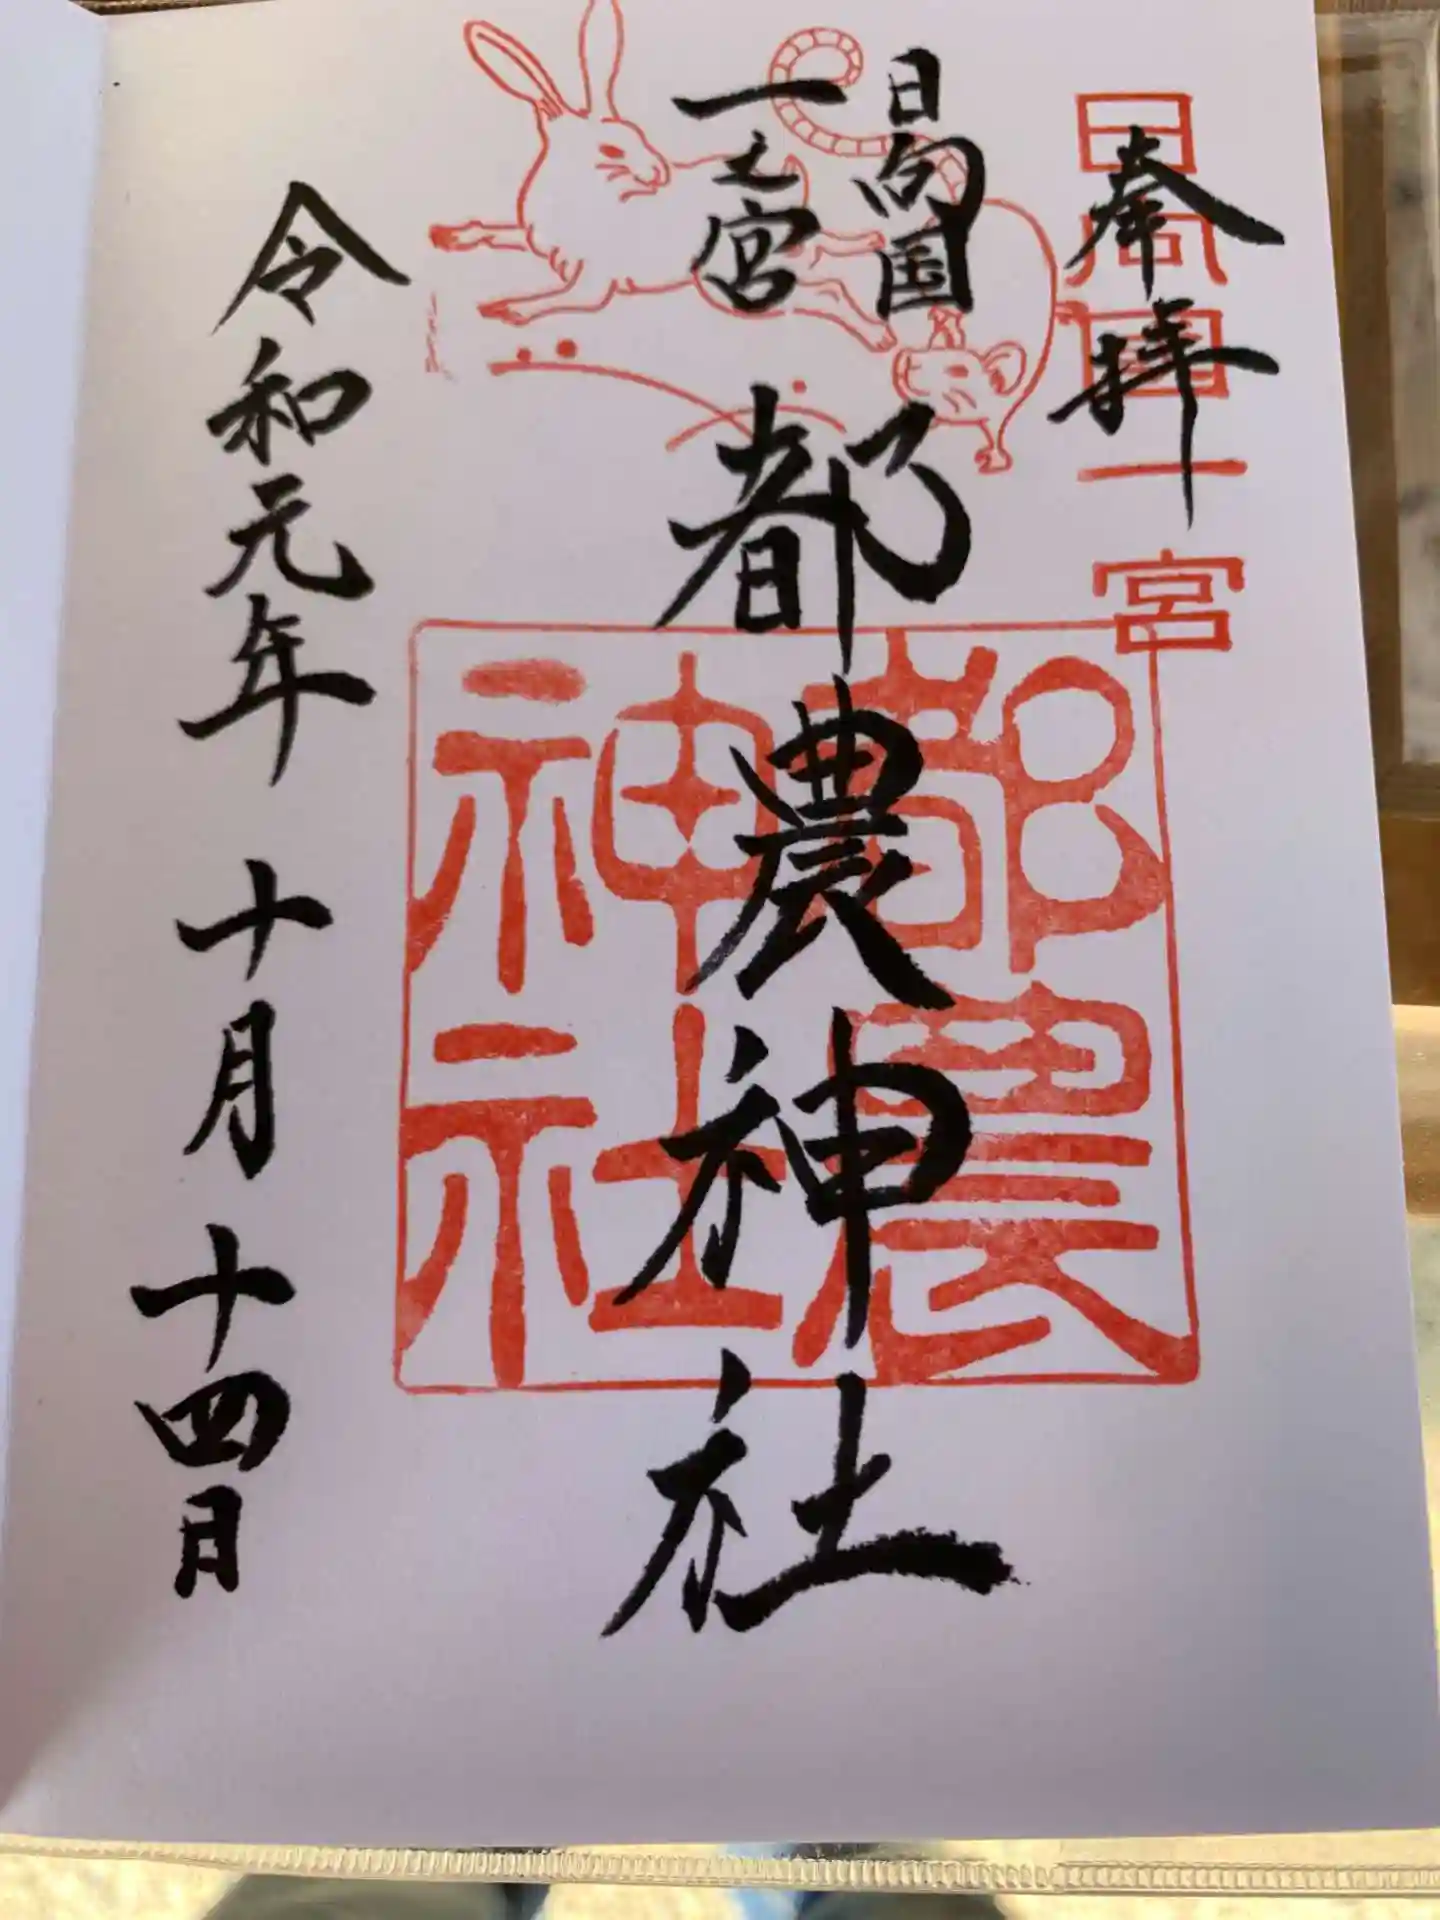 奉拝
日向国一宮
日向国
一之宮
都農神社
都農神社
令和元年十月十四日